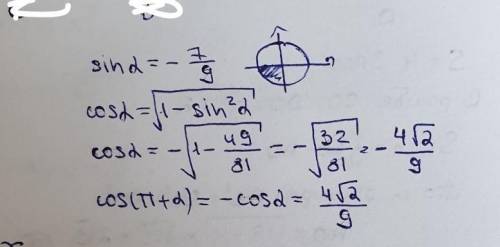 sin α = - 7/9
cos α = √(1 - sin²α)
cos α = -√(1 - 49/81) = -√(32/81) = - 4√2/9
cos(π+α) = -cos α = 4√2/9